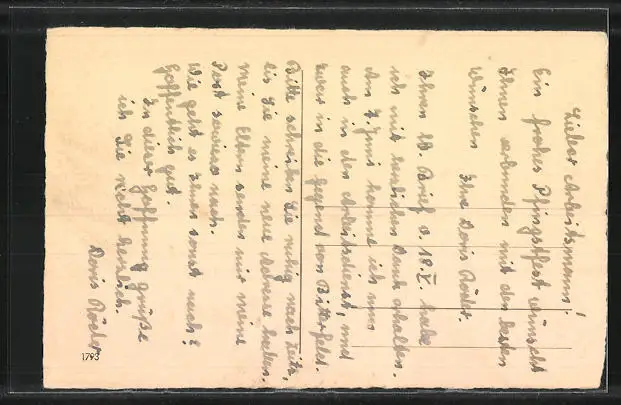 Lieber Arbeitsmann!
Ein frohes Pfingstfest wünscht
Ihnen verbunden mit den besten
Wünschen Ihre Doris Röder.
Ihren lb. Brief v. 18.V. habe
ich mit herzlichen Dank erhalten.
Am 7. Juni komme ich nun
auch in den Arbeitsdienst, und
zwar in die Gegend von Bitterfeld.
Bitte schreiben Sie ruhig nach Zeitz,
bis Sie meine neue Adresse haben.
Meine Eltern senden mir meine
Post sowieso nach.
Wie geht es Ihnen sonst noch?
Hoffentlich gut.
In dieser Hoffnung grüße
ich Sie recht herzlich.
Doris Röder
1793